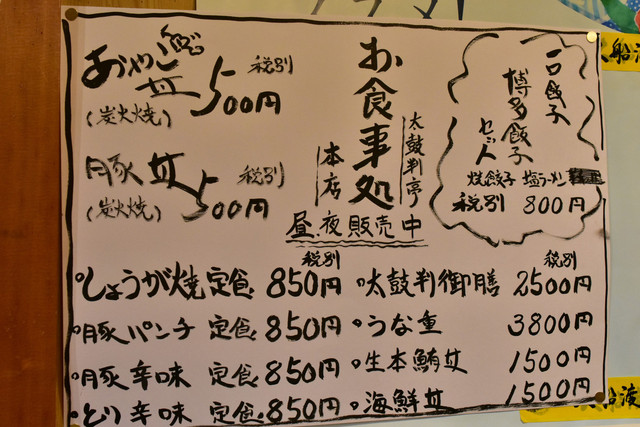 一口餃子
博多餃子
セット
焼餃子 塩ラーメン
税別 800円
お食事処
太鼓判亭
本店
昼、夜販売中
丼 税別
500円
(炭火焼)
豚丼 税別
500円
(炭火焼)
税別
しょうが焼定食 850円
豚パンチ 定食 850円
豚辛味 定食 850円
とり辛味 定食 850円
税別
太鼓判御膳 2500円
うな重 3800円
生本鮪丼 1500円
海鮮丼 1500円